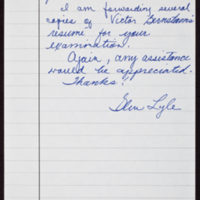 I am forwarding several
copies of Victor Bernstein's
resume for your
examination.
Again, any assistance
would be appreciated.
Thanks!
Glen Lyle